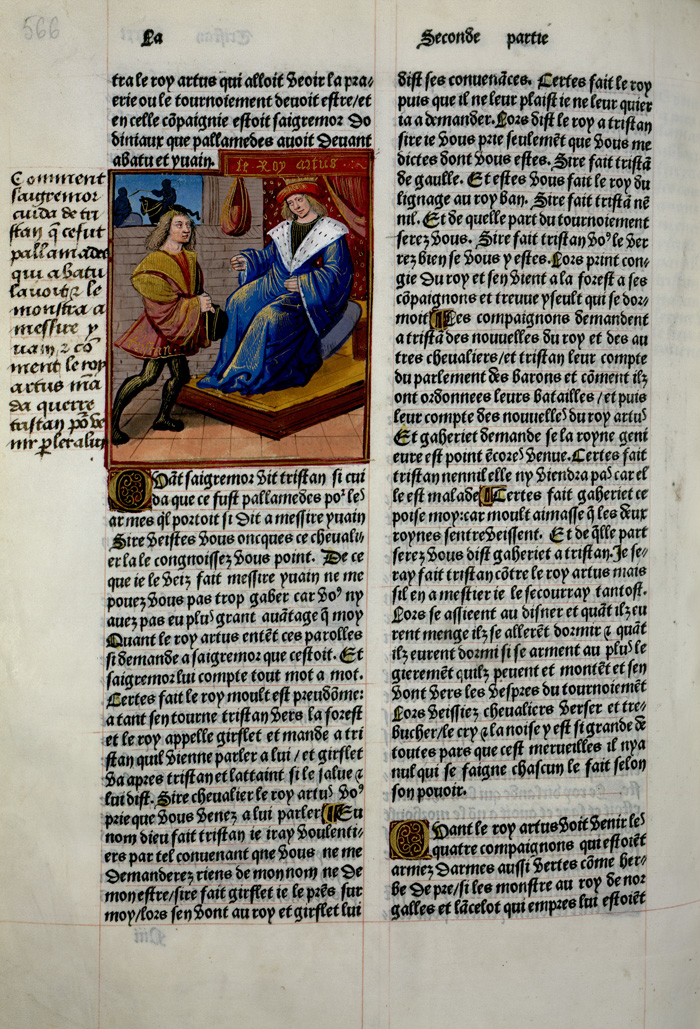 566
La
Seconde partie
tra le roy artus qui alloit veoir la pra-
erie ou le tournoiement devoit estre/et
en celle cõpaignie estoit saigremor Do
diniaux que pallamedes avoit devant
abatu et yvain.
le Roy artus
Comment
saigremor
cuida de tri
stan q̃ ce fut
pallamades
qui abatu
lavoit τ le
monstra a
messire y
vain τ cõ
ment le roy
artus mã
da querre
tristan põ ve
nir p̱ler a lui
Quãt saigremor vit tristan si cui
da que ce fust pallamedes poꝛ leˢ
armes q̃l portoit si dit a messire yvain
Sire veistes vous oncques ce chevali-
er la le congnoissez vous point. De ce
que ie le veiz fait messire yvain ne me
pouez vous pas trop gaber car voꝰ ny
avez pas eu pluˢ grant avãtage q̃ moy
Quant le roy artus entẽt ces parolles
si demande a saigremor que cestoit. Et
saigremor lui compte tout mot a mot.
Certes fait le roy moult est preudõme:
a tant sen tourne tristan vers la forest
et le roy appelle girflet et mande a tri
stan quil vienne parler a lui/et girflet
va apres tristan et lattaint si le salue τ
lui dist. Sire chevalier le roy artuˢ voꝰ
prie que vous venez a lui parler ¶ Eu
nom dieu fait tristan ie iray voulenti-
ers par tel convenant que vous ne me
demanderez riens de mon nom ne de
mon estre/sire fait girflet ie le prẽs sur
moy/lors sen vont au roy et girflet lui
dist ses convenãces. Certes fait le roy
puis que il ne leur plaist ie ne leur quier
ia a demander. Lors dist le roy a tristan
sire ie vous prie seulemẽt que vous me
dictes dont vous estes. Sire fait tristã
de gaulle. Et estes vous fait le roy du
lignage au roy ban. Sire fait tristã nẽ
nil. Et de quelle part du tournoiement
serez vous. Sire fait tristan voꝰ le ver
rez bien se vous y estes. Lors print con-
gie du roy et sen vient a la forest a ses
cõpaignons et treuve yseult qui se dor-
moit ¶ Les compaignons demandent
a tristã des nouvelles du roy et des au
tres chevaliers/et tristan leur compte
du parlement des barons et cõment ilz
ont ordonnees leurs batailles/et puis
leur compte des nouvelleˢ du roy artuˢ
Et gaheriet demande se la royne geni
eure est point ẽcoreˢ venue. Certes fait
tristan nennil elle ny viendra paˢ car el
le est malade ¶ Certes fait gaheriet ce
poise moy: car moult aimasse q̃ les deux
roynes sentreveissent. Et de q̃lle part
serez vous dist gaheriet a tristan. Je se-
ray fait tristan cõtre le roy artus mais
sil en a mestier ie le secourray tantost.
Lors se assieent au disner et quãt ilz eu
rent menge ilz se allerẽt dormir τ quãt
ilz eurent dormi si se arment au pluˢ le
gierement quilz peuent et montẽt et sen
vont vers les vespres du tournoiemẽt
Lors veissiez chevaliers verser et tre-
bucher/le cry τ la noise y est si grande de
toutes pars que cest merveilles il nya
nul qui se faigne chascun le fait selon
son pouoir.
Quant le roy artus voit venir leˢ
quatre compaignons qui estoiẽt
armez darmes aussi vertes cõme her-
be de pre/si les monstre au roy de nor
galles et lãcelot qui empres lui estoiẽt